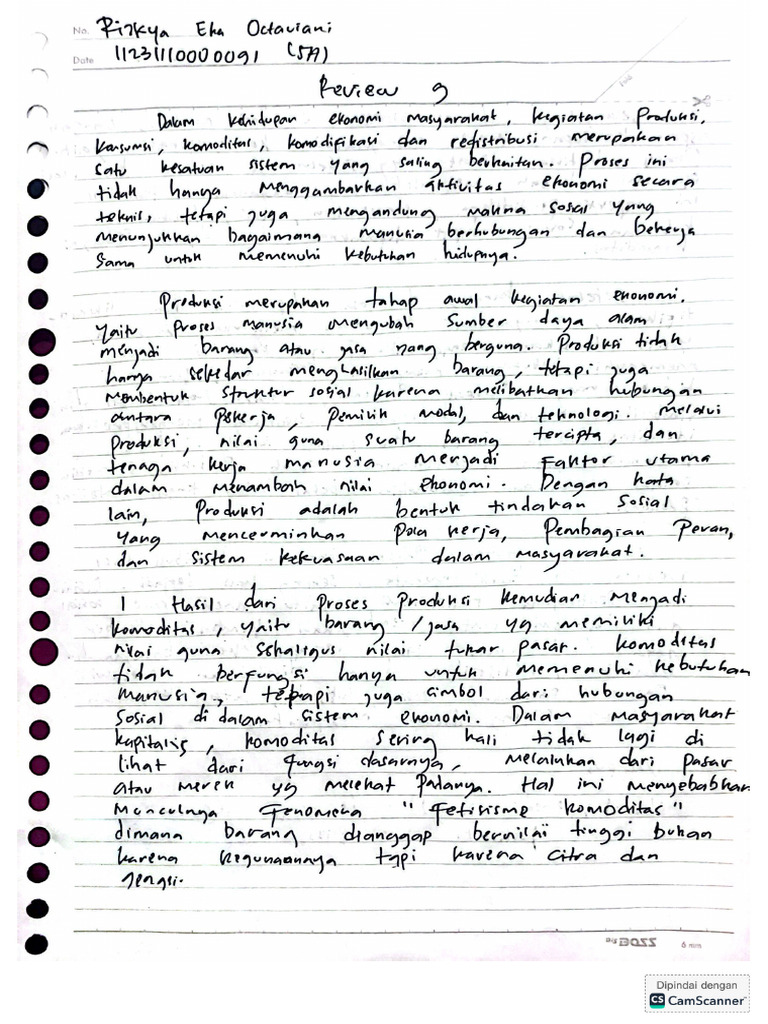 No. Rizkya Eka Octaviani
Date 11231110000091 (5A)
Review 9
Dalam kehidupan ekonomi masyarakat, kegiatan produksi,
konsumsi, komoditas, komodifikasi dan redistribusi merupakan
satu kesatuan sistem yang saling berkaitan. Proses ini
tidak hanya menggambarkan aktivitas ekonomi secara
teknis, tetapi juga mengandung makna sosial yang
menunjukkan bagaimana manusia berhubungan dan bekerja
sama untuk memenuhi kebutuhan hidupnya.
Produksi merupakan tahap awal kegiatan ekonomi,
yaitu proses manusia mengubah sumber daya alam
menjadi barang atau jasa yang berguna. Produksi tidak
hanya sekedar menghasilkan barang, tetapi juga
membentuk struktur sosial karena melibatkan hubungan
antara pekerja, pemilik modal, dan teknologi. melalui
produksi, nilai guna suatu barang tercipta, dan
tenaga kerja manusia menjadi faktor utama
dalam menambah nilai ekonomi. Dengan kata
lain, produksi adalah bentuk tindakan sosial
yang mencerminkan pola kerja, pembagian peran,
dan sistem kekuasaan dalam masyarakat.
Hasil dari proses produksi kemudian menjadi
komoditas, yaitu barang /jasa yg memiliki
nilai guna sekaligus nilai tukar pasar. komoditas
tidak berfungsi hanya untuk memenuhi kebutuhan
manusia, tetapi juga simbol dari hubungan
sosial di dalam sistem ekonomi. Dalam masyarakat
kapitalis, komoditas sering kali tidak lagi di
lihat dari fungsi dasarnya, melainkan dari pasar
atau merek yg melekat padanya. Hal ini menyebabkan
munculnya fenomena "fetisisme komoditas"
dimana barang dianggap bernilai tinggi bukan
karena kegunaannya tapi karena citra dan
gengsi.
BOSS 6 mm
Dipindai dengan
CS CamScanner